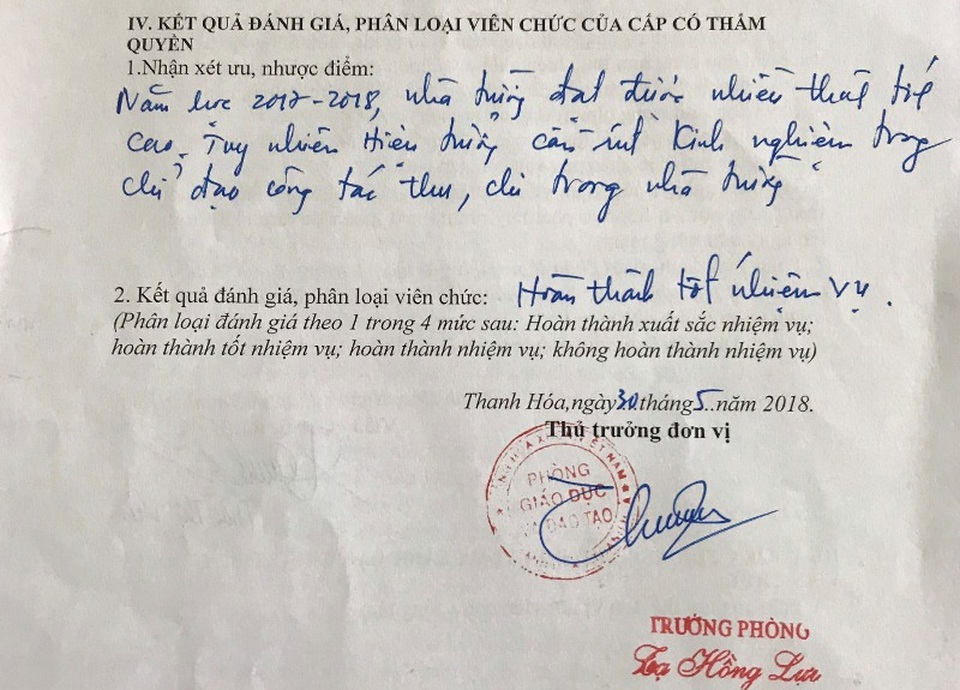 IV. KẾT QUẢ ĐÁNH GIÁ, PHÂN LOẠI VIÊN CHỨC CỦA CẤP CÓ THẨM
QUYỀN
1.Nhận xét ưu, nhược điểm:
Năm học 2017-2018, nhà trường đạt được nhiều thành tích
cao. Tuy nhiên Hiệu trưởng cần rút kinh nghiệm trong
chỉ đạo công tác thu, chi trong nhà trường
2. Kết quả đánh giá, phân loại viên chức: Hoàn thành tốt nhiệm vụ.
(Phân loại đánh giá theo 1 trong 4 mức sau: Hoàn thành xuất sắc nhiệm vụ;
hoàn thành tốt nhiệm vụ; hoàn thành nhiệm vụ; không hoàn thành nhiệm vụ)
Thanh Hóa,ngày 30 tháng 5..năm 2018.
Thủ trưởng đơn vị
PHÒNG
GIÁO DỤC
VÀ ĐÀO TẠO
TRƯỞNG PHÒNG
Tạ Hồng Lựu